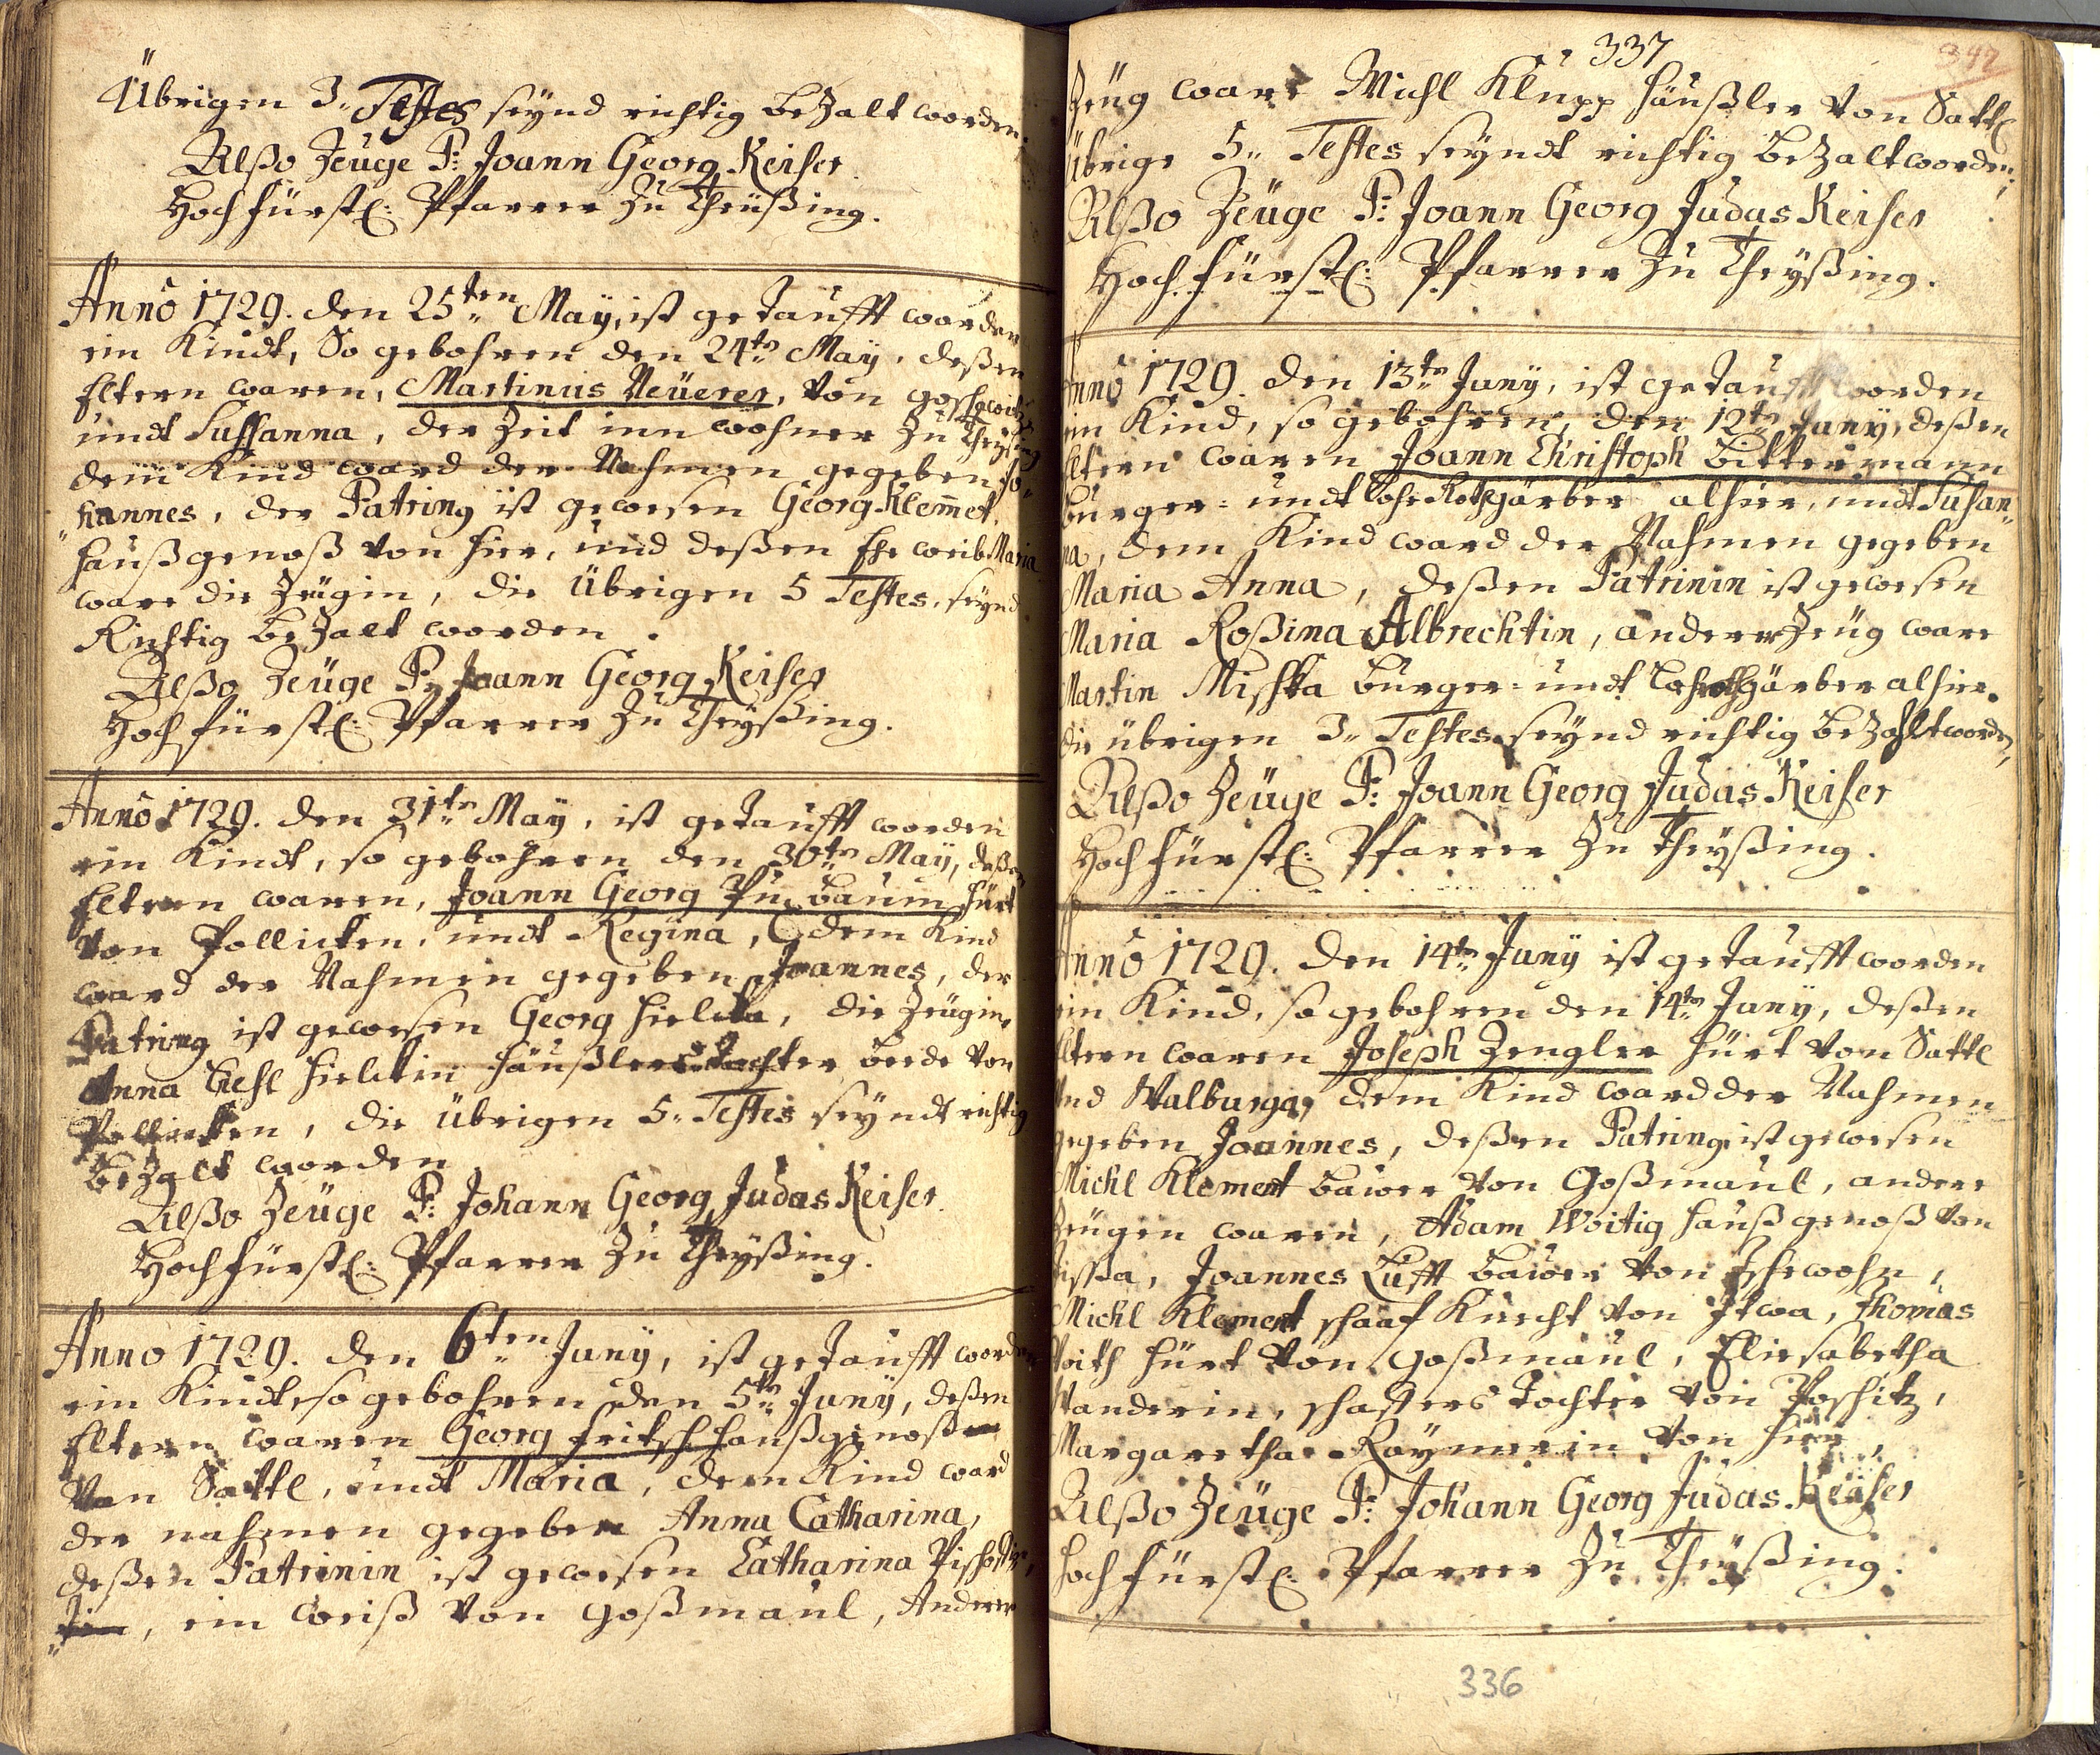 Übrigen 3. Testes seynd richtig bezalt worden.
Alßo Zeuge P: Joann Georg Keiser
Hochfürstl: Pfarrer zu Theußing.
Anno 1729. den 25ten May, ist getaufft worden
ein Kindt, So gebohren den 24tn May, deßen
Eltern waren, Martinus Neuerer, von
undt Sussanna, der Zeit inn wohner zu Theyßing
dem Kind ward der Nahmen gegeben Jo-
hannes, der Patring ist gewesen Georg Klemet,
Haußgenoß von hier, und deßen Ehe weib Maria
ware die Zeugin, die Übrigen 5 Testes, seynd
Richtig bezalt worden.
Alßo Zeuge P: Joann Georg Keiser
Hochfürstl: Pfarrer zu Theyßing.
Anno 1729. den 31tn May, ist getaufft worden
ein Kindt, so gebohren den 30tn May, deßen
Eltern waren, Joann Georg baum Hürt
von Pollicken, undt Regina, dem Kind
ward der Nahmen gegeben Joannes, der
Patring ist gewesen Georg, die Zeugin,
Anna häußlers Tochter beede von
Pollicken, die übrigen 5. Testes seyndt richtig
bezalt worden
Alßo Zeuge P: Johann Georg Judas Keiser
Hochfürstl: Pfarrer zu Theyßing.
Anno 1729. den 6ten Juny, ist getaufft worden
ein Kindt, so gebohren den 5tn Juny, deßen
Eltern waren Georg Fritsch haußgenoß
von Sattl, undt Maria, dem Kind ward
der nahmen gegeben Anna Catharina,
deßen Patrinin ist gewesen Catharina
, ein von Goßmaul, Anderer
337
Zeug ware Michl Klupp häußler von Sattl
Übrige 5. Testes seyndt richtig bezalt worden;
Alßo Zeuge P: Joann Georg Judas Keiser
Hochfürstl: Pfarrer zu Theyßing.
Anno 1729. den 13tn Juny, ist getaufft worden
ein Kind, so gebohren, den 12tn Juny, deßen
Eltern waren Joann Christoph Bittermann
Burger= undt Loh Rothgärber alhier, undt Susan-
na, dem Kind ward der Nahmen gegeben
Maria Anna, deßen Patrinin ist gewesen
Maria Roßina Albrechtin, anderer Zeug ware
Martin Mischka burger= undt Lohrothgärber alhier.
die übrigen 3. Testes seynd richtig bezahlt worden,
Alßo Zeuge P: Joann Georg Judas Keiser
Hochfürstl: Pfarrer zu Theyßing.
Anno 1729. den 14tn Juny ist getaufft worden
ein Kind, so gebohren den 14tn Juny, deßen
Eltern waren Joseph Zengler Hürt von Sattl
und Walburga, dem Kind ward der Nahmen
gegeben Joannes, deßen Patring ist gewesen
Michl Klement bauer von Goßmaul, andere
Zeugen waren, Adam Woitig haußgenoß von
, Joannes Lufft bauer von,
Michl Klement schaaf Knecht von, Thomas
Voith Hürt von Goßmaul, Eliesabetha
, schaffers Tochter von Poschitz,
Margaretha Raymerin von hier,
Alßo Zeuge P: Johann Georg Judas Keiser
Hochfürstl: Pfarrer zu Theyßing.
336